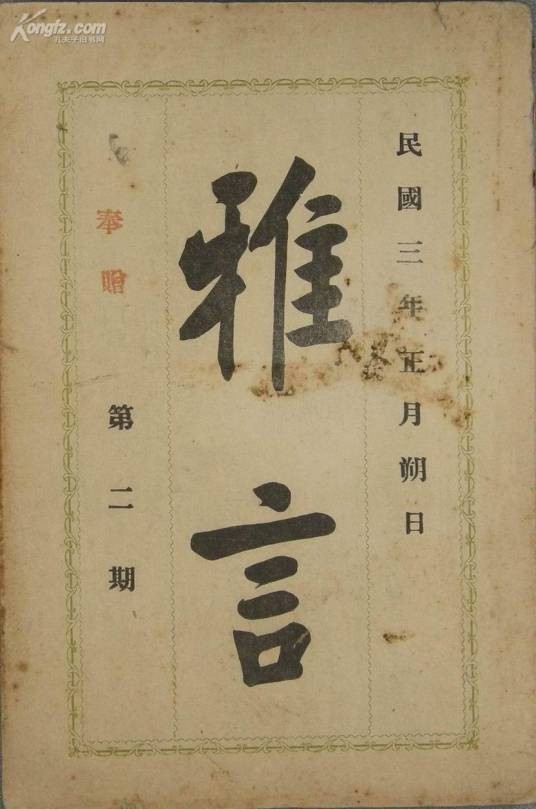 Kongfz.com
孔夫子旧书网
民國三年正月朔日
雅言
奉贈
第二期